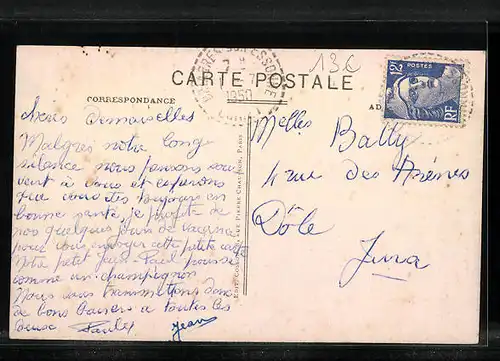 13€
CARTE POSTALE
CORRESPONDANCE
AD
1950
12F POSTES
RF
Chères Demoiselles
Malgrès notre long
silence nous pensons sou
vent à vous et espérons
que vous êtes toujours en
bonne santé, je profite de
nos quelques jours de vacance
pour vous envoyer cette petite carte
Notre petit Jean-Paul pousse
comme un champignon
Nous vous transmettons donc
de bons baisers à toutes les
deux Paulet
Jean
Melles Bailly
rue des Arènes
Dôle
Jura